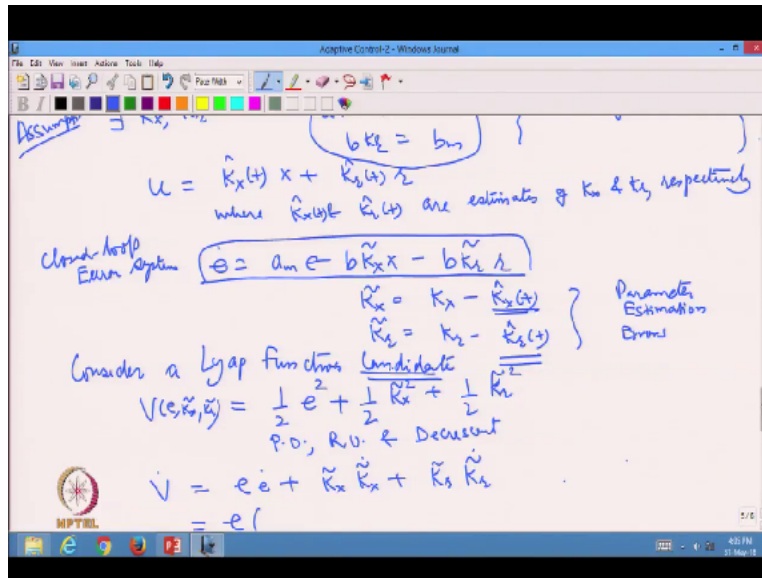 Adaptive Control-2 - Windows Journal
File Edit View Insert Actions Tools Help
B I
Assumpn ∃ Kx,
b kr = bm
u = K̂x(t) x + K̂r(t) r
where K̂x(t) & K̂r(t) are estimates of kx & kr, respectively
Closed-loop Error system ė = am e - b K̃x x - b K̃r r
K̃x = Kx - K̂x(t)
K̃r = Kr - K̂r(t) } Parameter Estimation Errors
Consider a Lyap Function Candidate
V(e, K̃x, K̃r) = 1/2 e² + 1/2 K̃x² + 1/2 K̃r²
P.D., R.U. & Decrescent
V̇ = e ė + K̃x K̃̇x + K̃r K̃̇r
= e (
NPTEL
5/6
4:05 PM
31-May-18